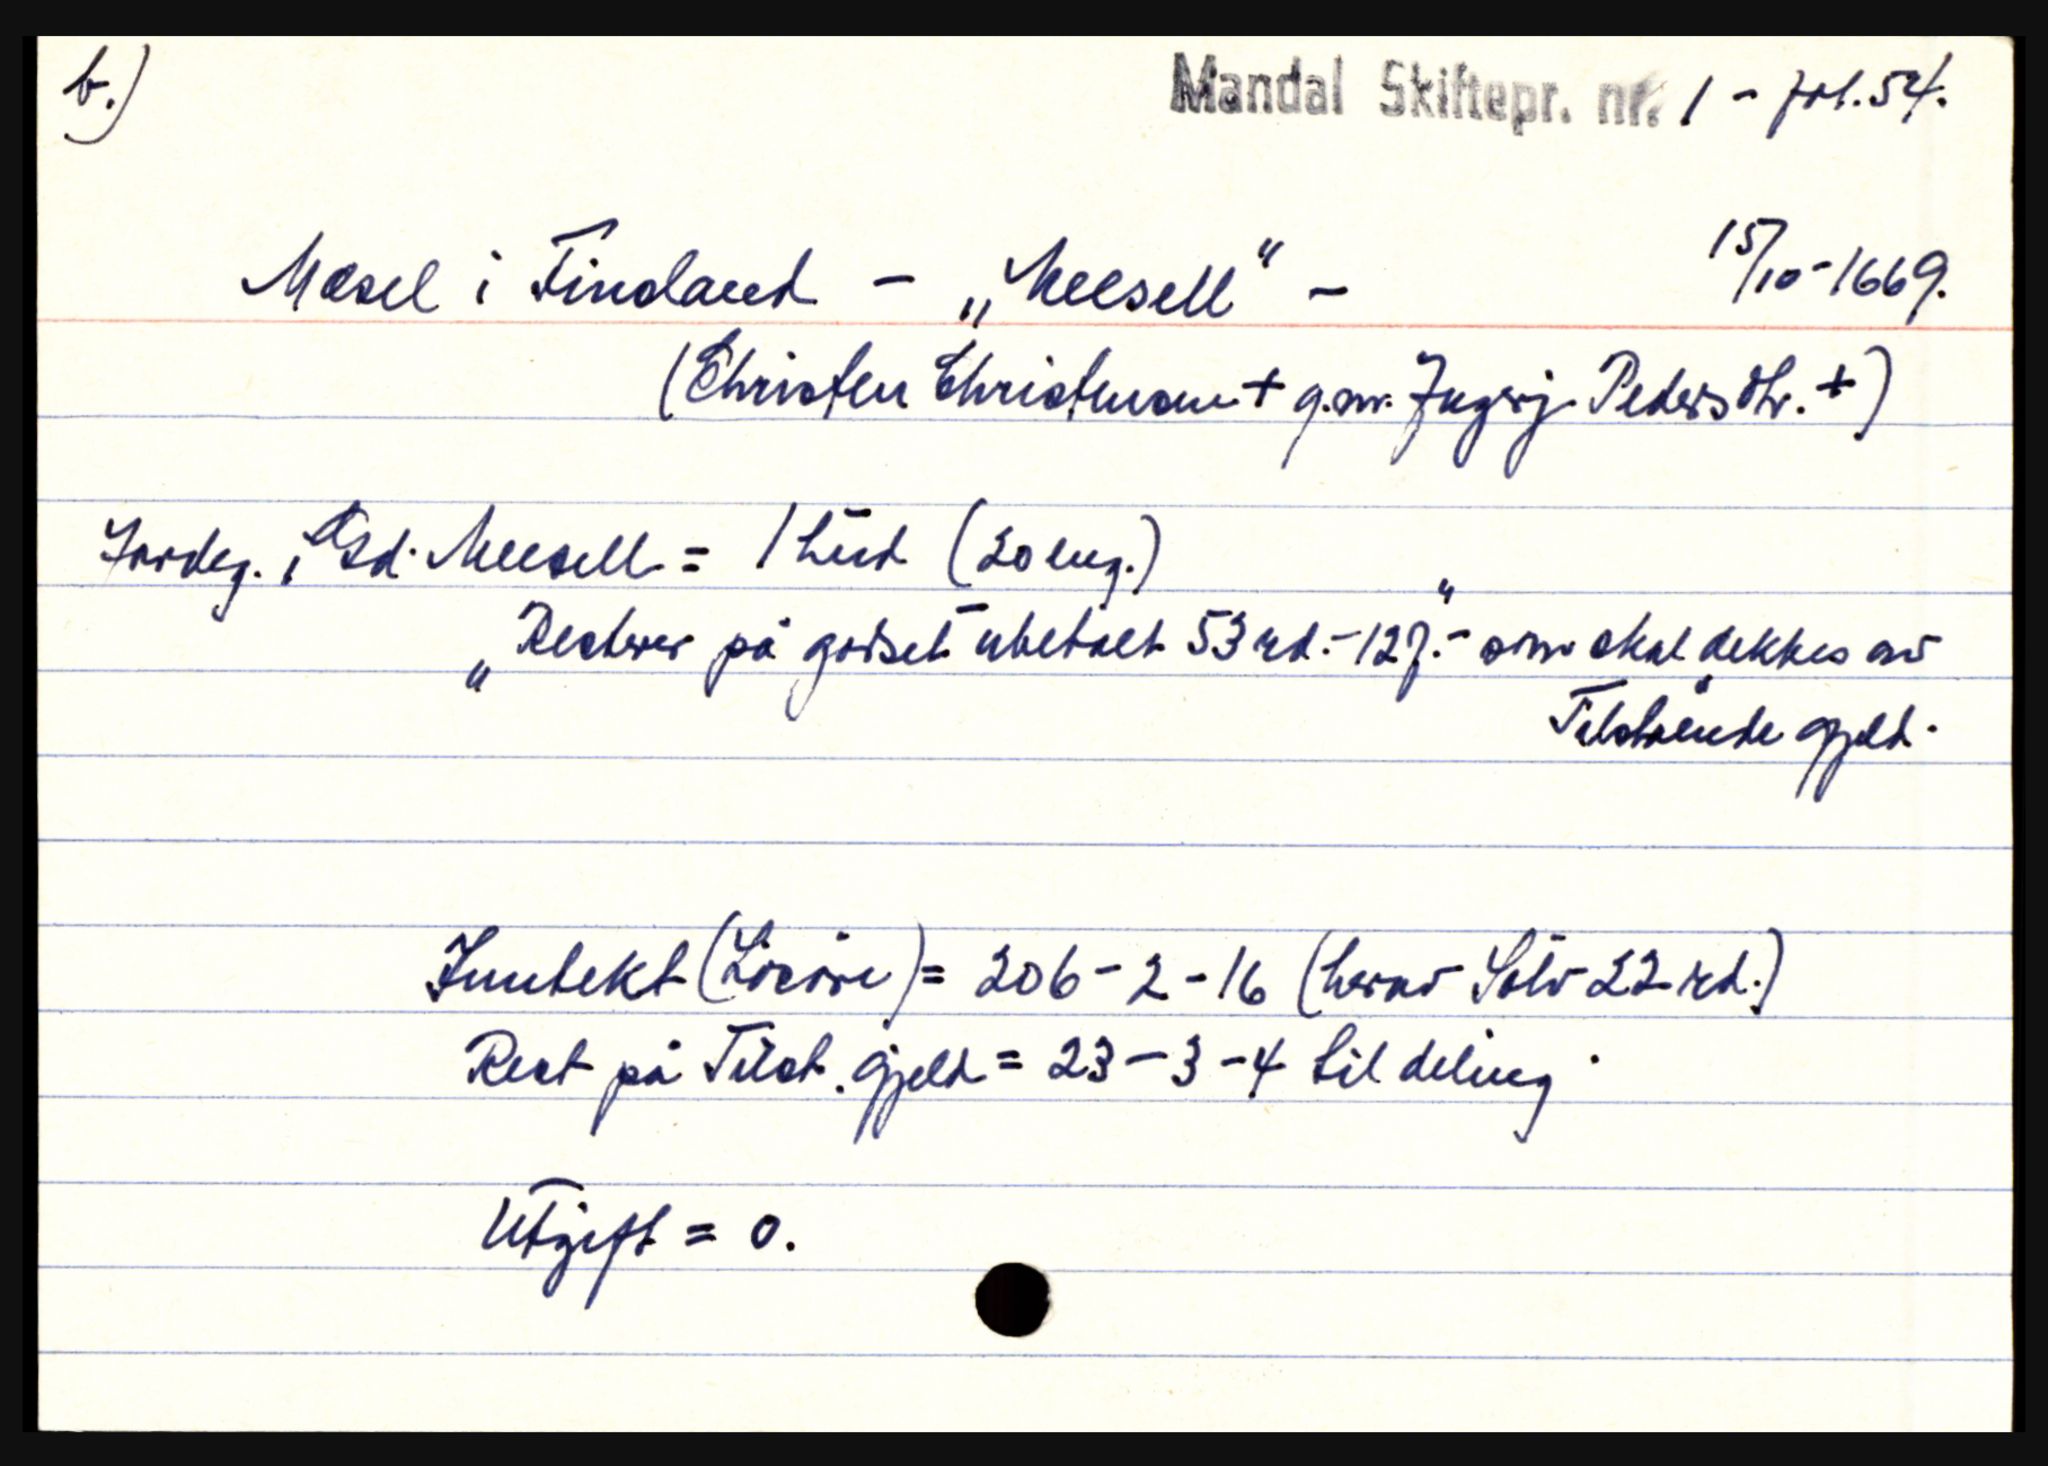 b.)
Mandal Skiftepr. nr. 1 - fol. 54.
Mæsel i Finsland - „Meesell" - 15/10-1669.
(Christen Christensen + g.m. Ingerj Pedersdtr. +)
Jordeg. i Gd. Meesell = 1 hud (20 eng.)
„Resterer på godset ubetalt 53 rd.-12ß.-" som skal dekkes av
Tilstående gjeld.
Inntekt (Løsøre) = 206-2-16 (herav Sølv 22 rd.)
Rest på Tilst. gjeld = 23-3-4 til deling.
Utgift = 0.